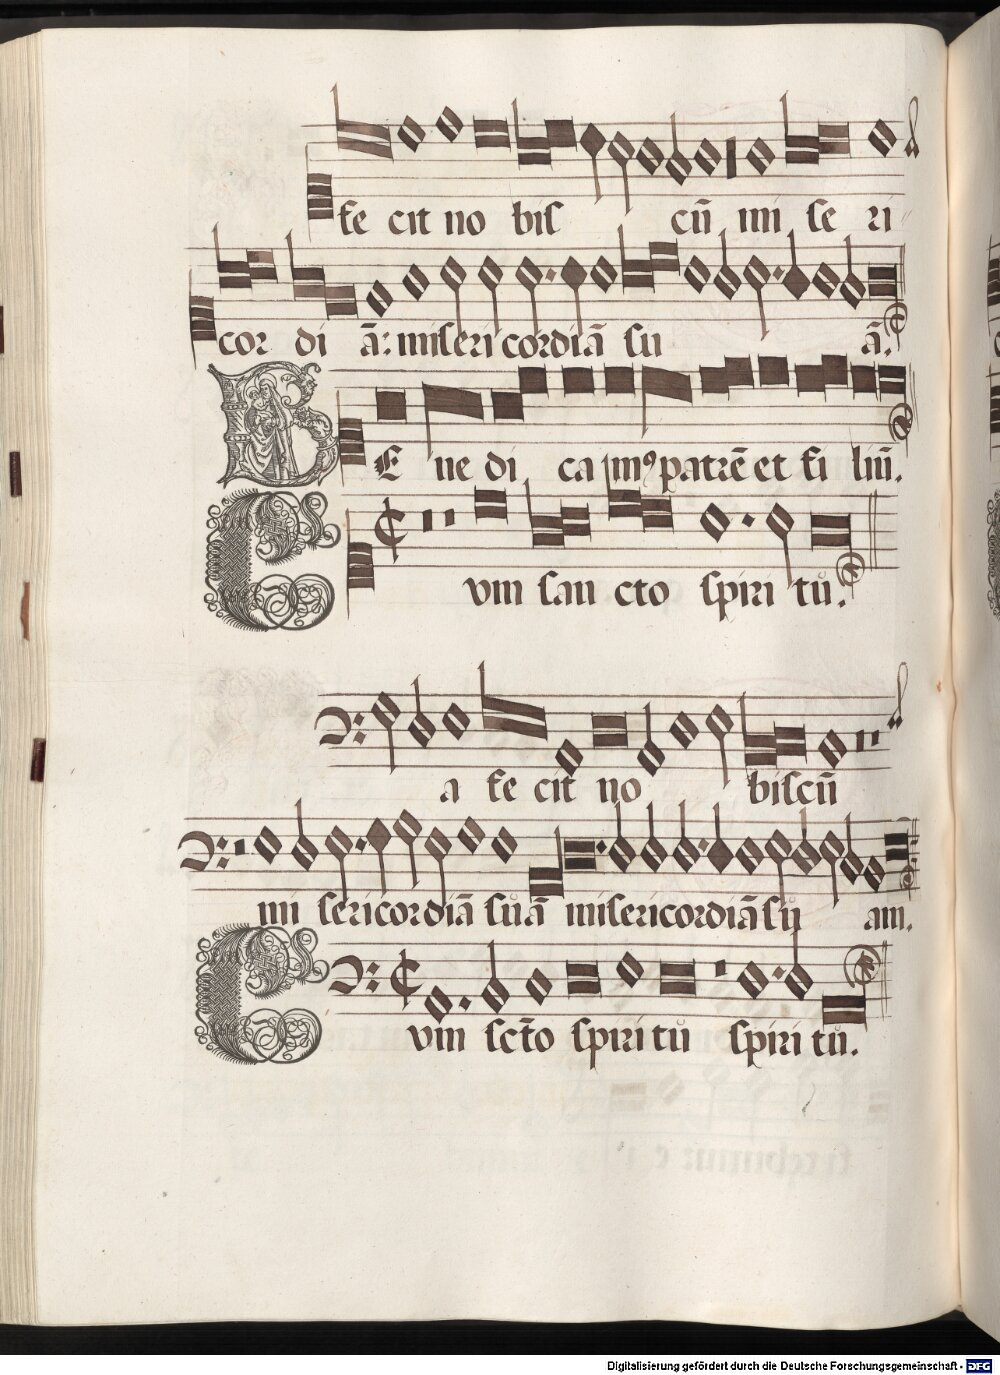 fe cit no bis cū mi se ri
cor di ā: misericordiā su ā.
BE ne di ca imꝰ patrē et fi liū.
Cum san cto spiri tů.
a fe cit no biscū
mi sericordiā suā misericordiā su am.
Cum scto spiri tů spiri tů.
Digitalisierung gefördert durch die Deutsche Forschungsgemeinschaft - DFG